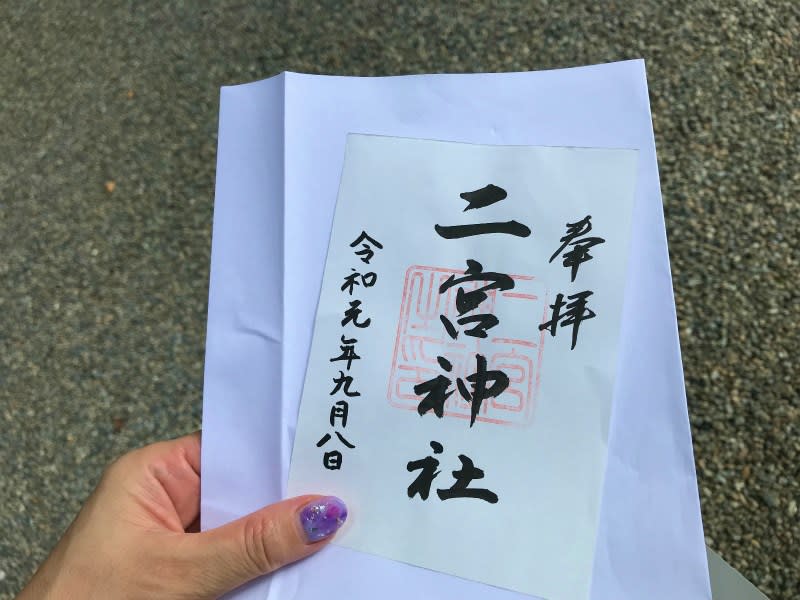 奉拝
二宮神社
令和元年九月八日